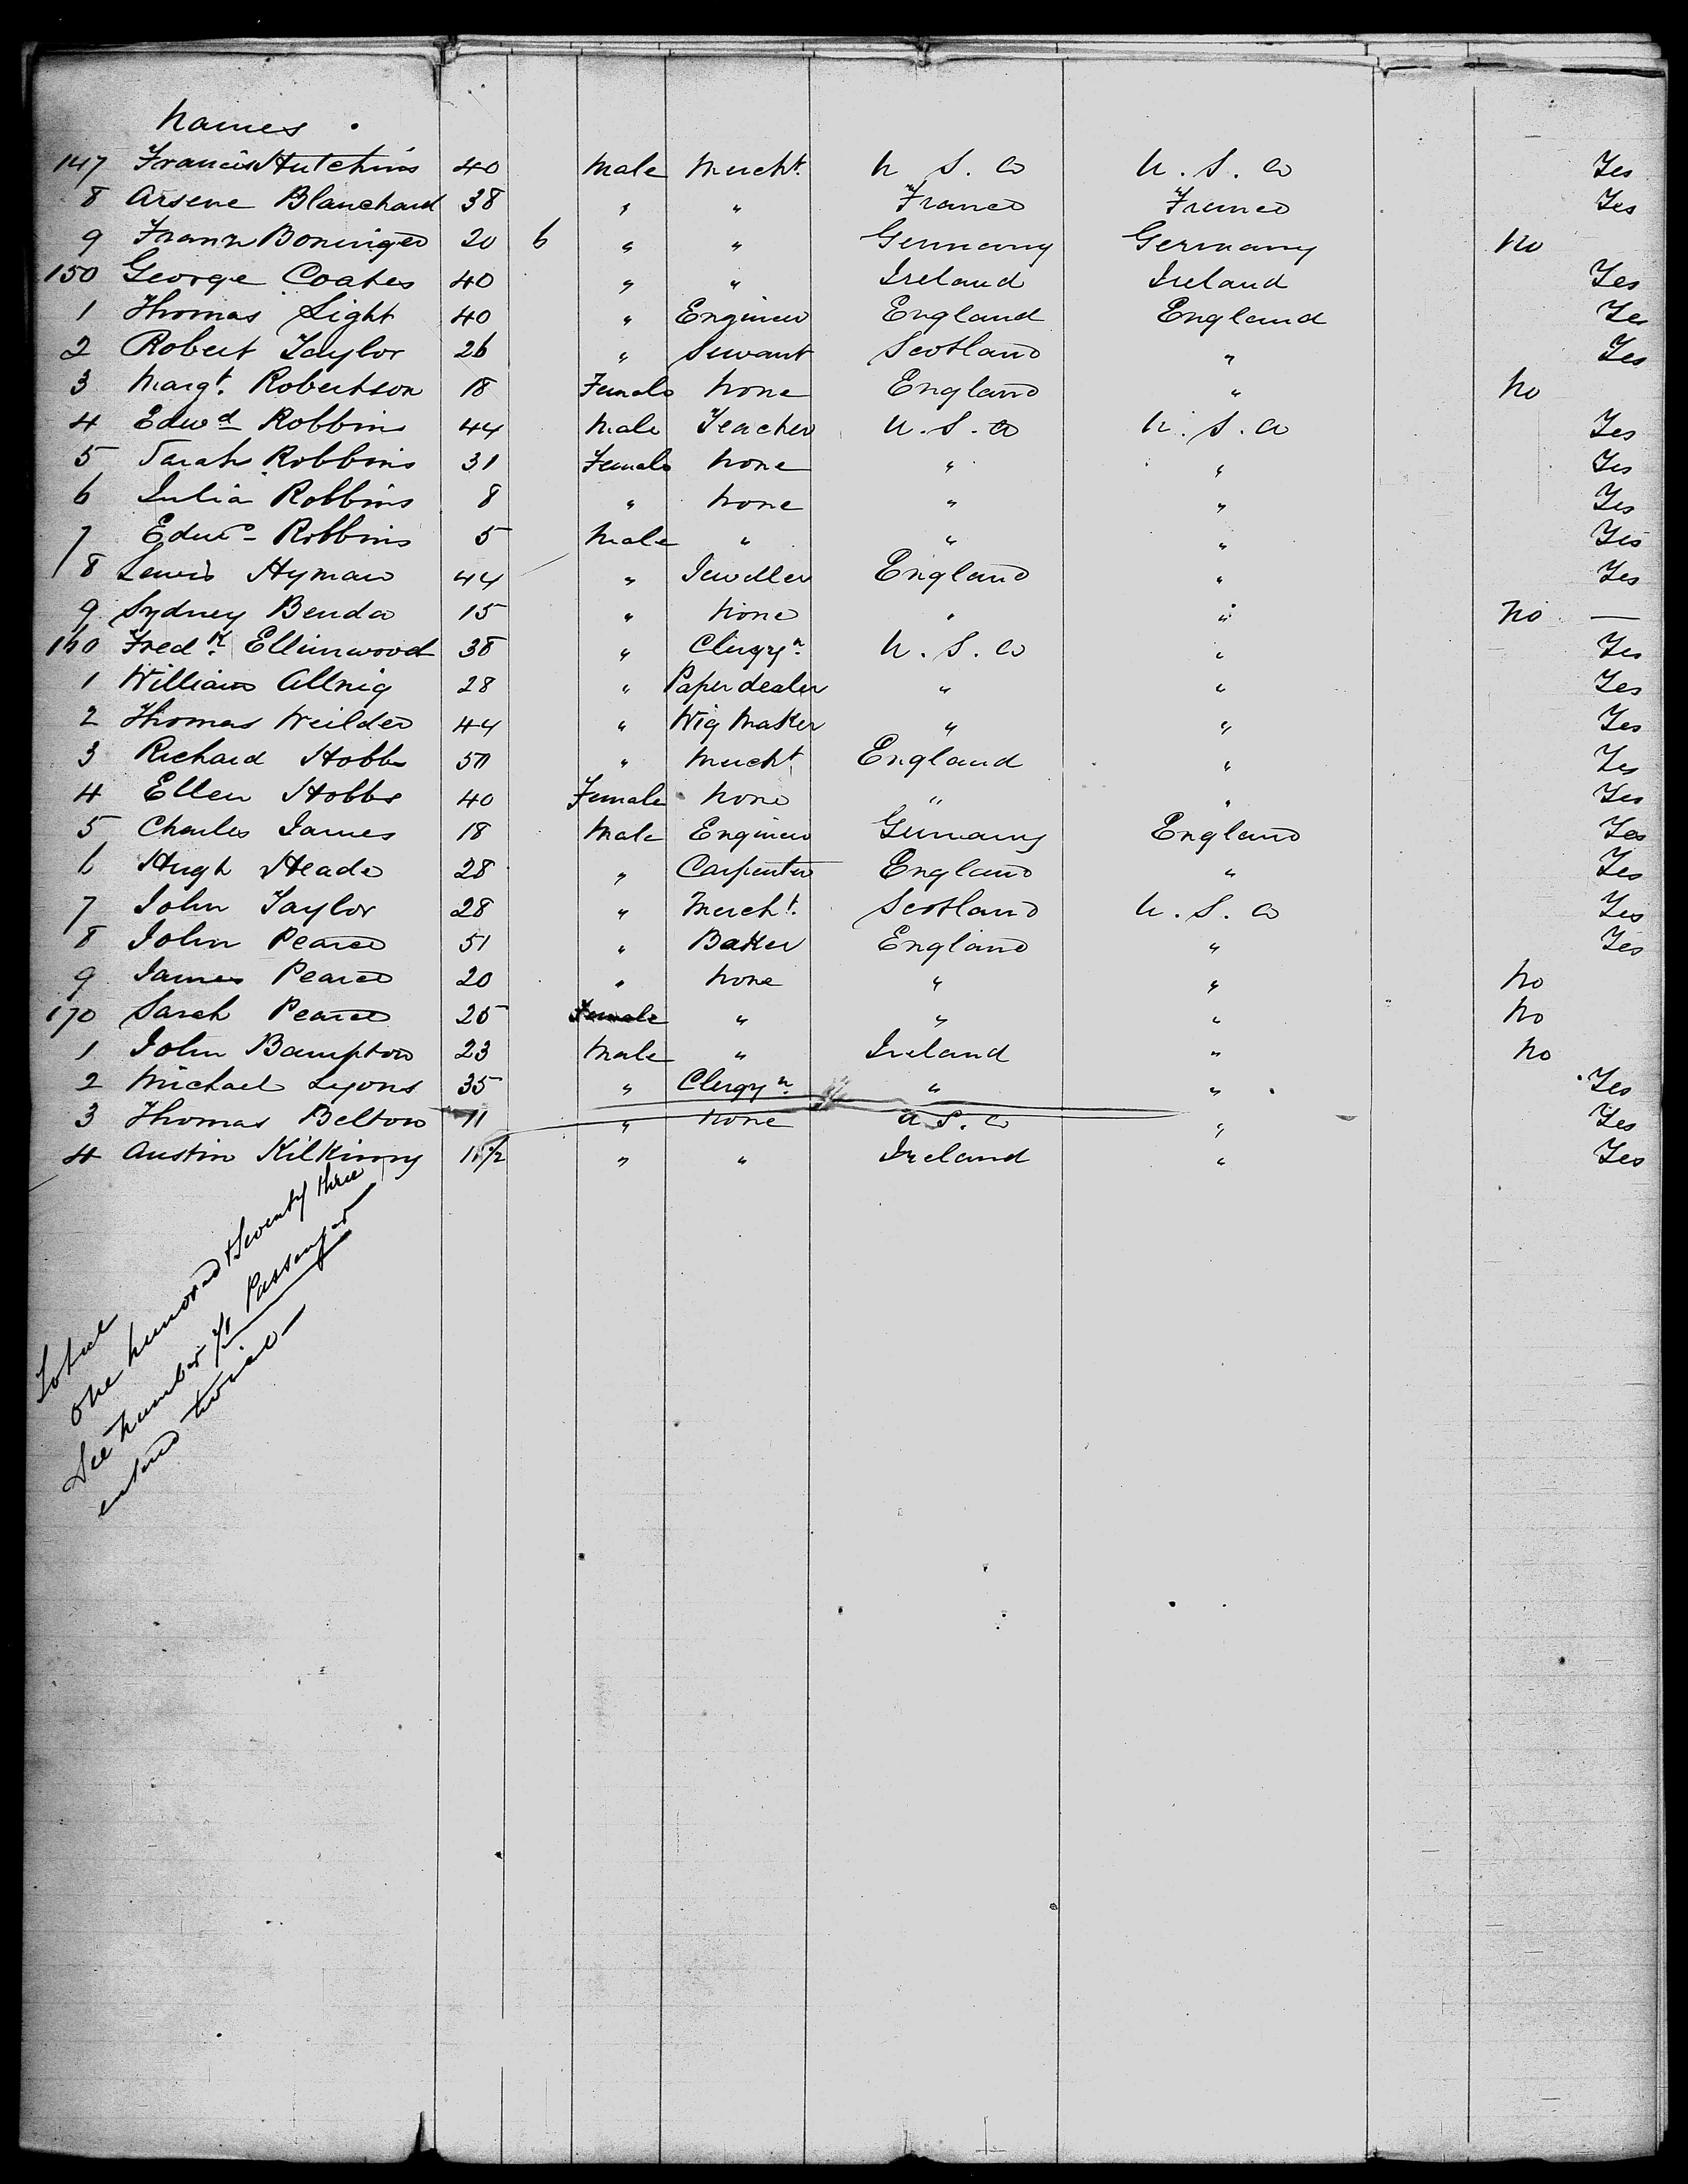 Names
147 Francis Hutchins 40 Male Mercht. U S. A U. S. A Yes
8 Arsene Blanchard 38 " " France France Yes
9 Boninger 20 6 " " Germany Germany No
150 George Coates 40 " " Ireland Ireland Yes
1 Thomas Light 40 " Engineer England England Yes
2 Robert Taylor 26 " Servant Scotland " Yes
3 Margt. Robertson 18 Female None England " No
4 Edwd Robbins 44 Male Teacher U.S.A U.S.A Yes
5 Sarah Robbins 31 Female None " " Yes
6 Julia Robbins 8 " None " " Yes
7 Edwd Robbins 5 Male " " " Yes
8 Lewis Hyman 44 " Jeweller England " Yes
9 Sydney Benda 15 " None " " No —
160 Fredk. Ellinwood 38 " Clergyn. U.S.A " Yes
1 William Allnig 28 " Paper dealer " " Yes
2 Thomas Weilder 44 " Wig Maker " " Yes
3 Richard Hobbs " Mercht England " Yes
4 Ellen Hobbs 40 Female None " " Yes
5 Charles James 18 Male Engineer Germany England Yes
6 Hugh Heade 28 " Carpenter England " Yes
7 John Taylor 28 " Mercht. Scotland U.S.A Yes
8 John Pearce 51 " Baker England " Yes
9 James Pearce 20 " None " " No
170 Sarah Pearce 25 Female " " " No
1 John Bampton 23 Male " Ireland " No
2 Michael Lyons 35 " Clergyn. " " Yes
3 Thomas Belton 11 " None U.S.A " Yes
4 Austin Kilkinny " " Ireland " Yes
Total
One hundred & Seventy three
See number Passenger
entered twice